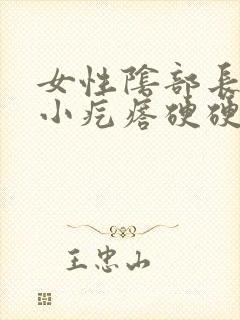 女性陰部長
小疙瘩硬硬
王忠山